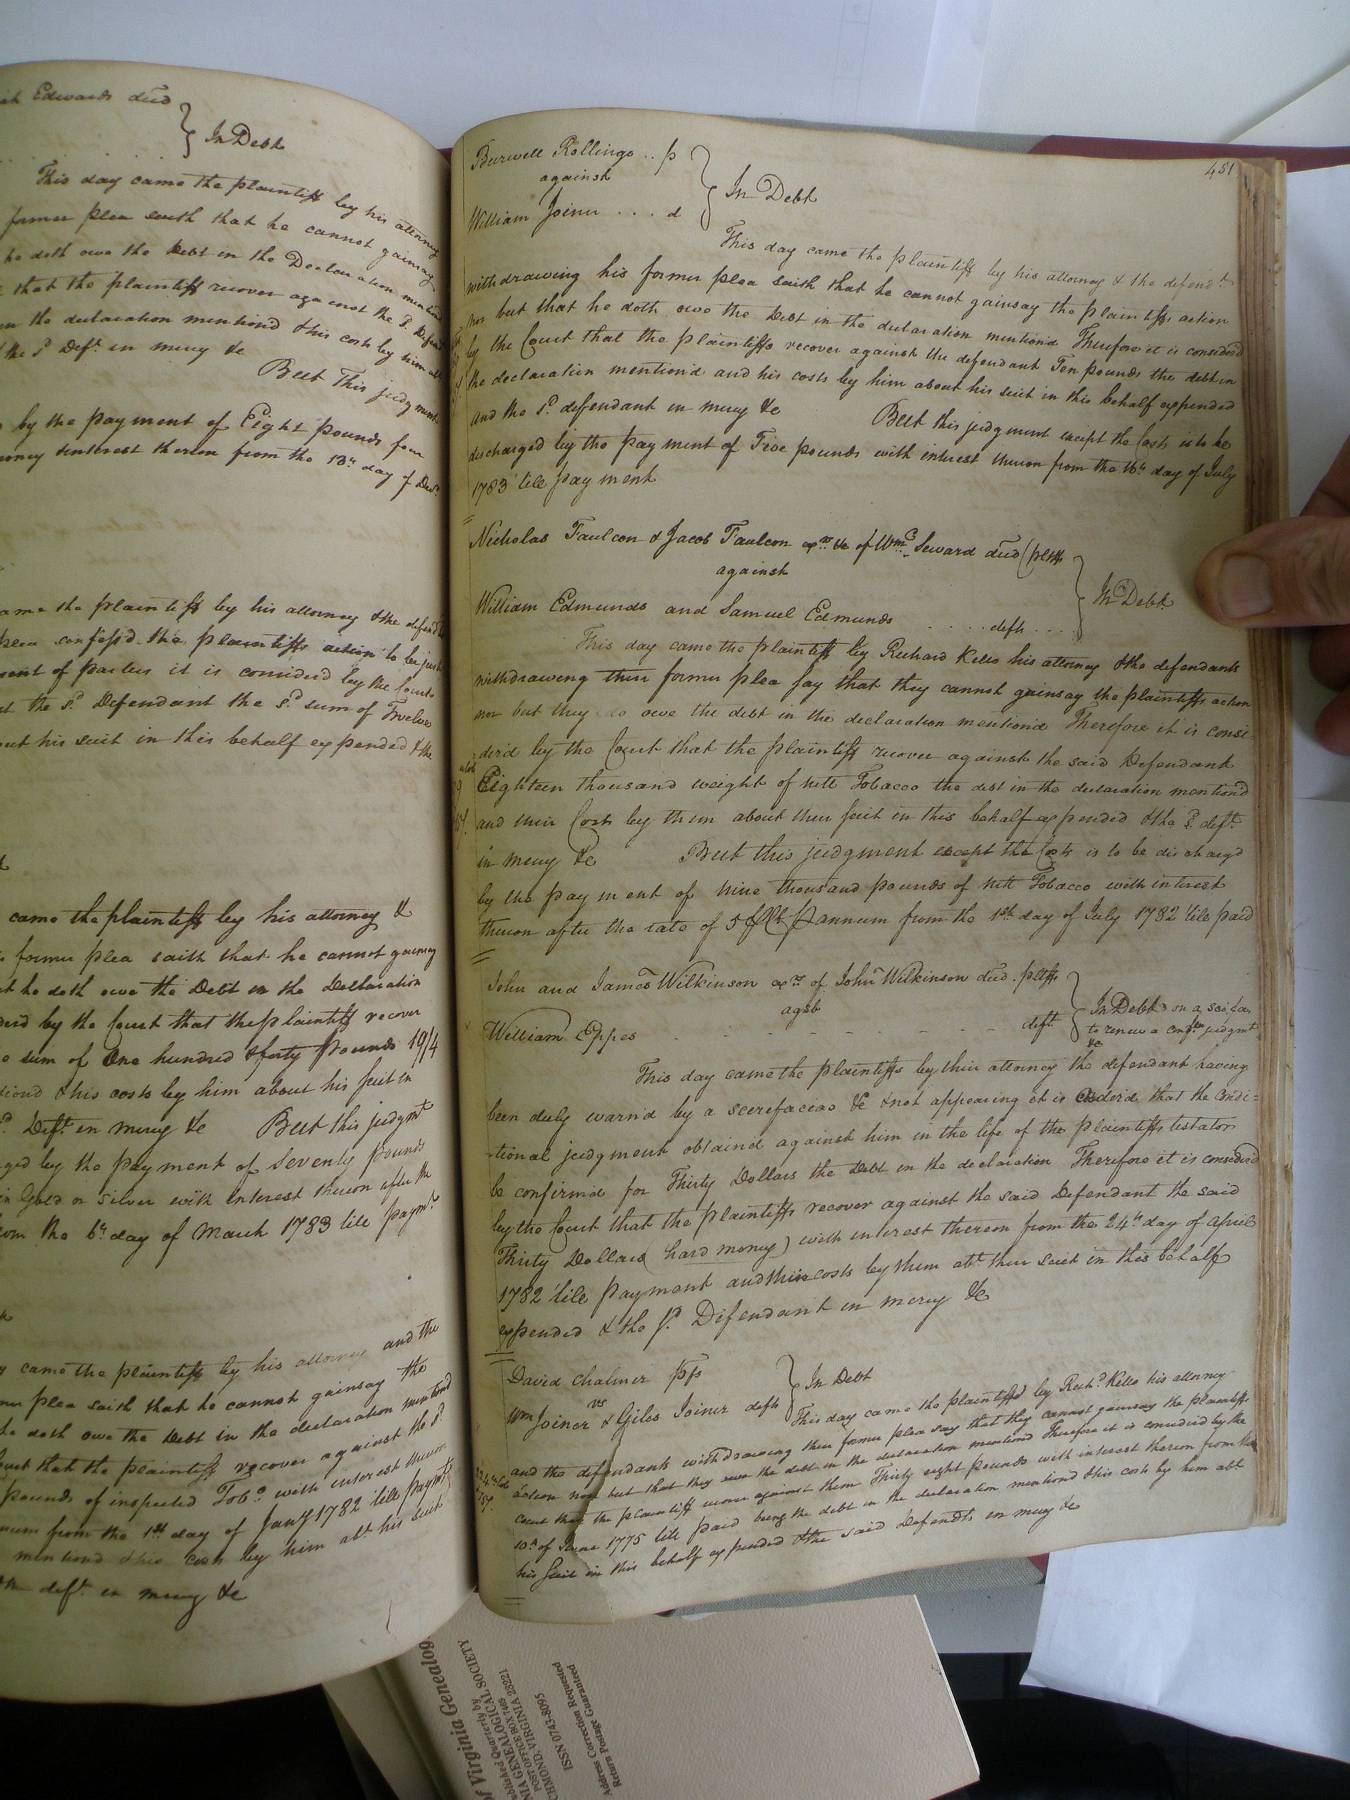 Edwards decd
In Debt
This day came the plaintiff by his attorney
former plea saith that he cannot gainsay
he doth owe the Debt in the Declaration mentiond
that the plaintiff recover against the sd. Defend
in the declaration mentiond & his costs by him abt
the sd. Deft. in mercy &c
But This judgment
by the payment of Eight pounds four
interest thereon from the 13th day of Decr.
came the plaintiff by his attorney & the defend
plea confess'd the plaintiffs action to be just
of parties it is considerd by the Court
the sd. Defendant the sd. sum of Twelve
his suit in this behalf expended & the
came the plaintiff by his attorney &
former plea saith that he cannot gainsay
he doth owe the Debt in the Declaration
by the Court that the plaintiff recover
sum of One hundred & forty pounds 19/4
& his costs by him about his suit in
Deft. in mercy &c But this judgmt
by the payment of Seventy pounds
in Gold or Silver with Interest thereon after the
from the 6th day of March 1783 till paymt.
came the plaintiff by his attorney and the
plea saith that he cannot gainsay the
he doth owe the Debt in the declaration mentiond
that the plaintiff recover against the sd.
pounds of inspected Tobo. with interest thereon
from the 1st day of Jany 1782 till paymt
mentiond & his costs by him abt. his suit
the deft. in mercy &c
451
Burwell Rollings .. p
against
William Joiner . . . . d
In Debt
This day came the plaintiff by his attorney & the defendt.
withdrawing his former plea saith that he cannot gainsay the plaintiffs action
nor but that he doth owe the Debt in the declaration mentiond Therefore it is considerd
by the Court that the plaintiffs recover against the defendant Ten pounds the debt in
the declaration mention'd and his costs by him about his suit in this behalf expended
and the sd. defendant in mercy &c But this judgment except the Costs is to be
discharged by the payment of Five pounds with interest thereon from the 16th day of July
1783 till payment
Nicholas Faulcon & Jacob Faulcon exrs. &c of Wm. Seward decd plffs
against
William Edmunds and Samuel Edmunds . . . . . defts . . .
In Debt
This day came the plaintiff by Richard Kello his attorney & the defendants
withdrawing their former plea say that they cannot gainsay the plaintiffs action
nor but they do owe the debt in the declaration mentiond Therefore it is consi-
derd by the Court that the plaintiff recover against the said Defendant
Eighteen thousand weight of nett Tobacco the debt in the declaration mentiond
and their Costs by them about their suit in this behalf expended & the sd. defts.
in mercy &c But this judgment except the Costs is to be dischargd
by the payment of nine thousand pounds of nett Tobacco with interest
thereon after the rate of 5 pCt. p annum from the 1st day of July 1782 till paid
John and James Wilkinson exrs. of John Wilkinson decd. plaffs
agst
William Eppes - - - - - - - - deft
In Debt on a sci. fas
to renew a judgmt
&c
This day came the plaintiffs by their attorney the defendant having
been duly warn'd by a scirefacias &c & not appearing it is Orderd that the Condi-
tional judgment obtaind against him in the life of the plaintiffs testator
be confirm'd for Thirty Dollars the Debt in the declaration Therefore it is considered
by the Court that the plaintiffs recover against the said Defendant the said
Thirty Dollars (hard money) with interest thereon from the 24th day of April
1782 till payment and their costs by them abt. their suit in this behalf
expended & the sd. Defendant in mercy &c
David Chalmer plfs
vs
Wm Joiner & Giles Joiner defts
In Debt
This day came the plaintiff by Richd. Kello his attorney
and the defendants withdrawing their former plea say that they cannot gainsay the plaintiffs
action nor but that they owe the debt in the declaration mentiond Therefore it is considerd by the
Court that the plaintiff recover against them Thirty eight pounds with interest thereon from the
10th of June 1775 till paid being the debt in the declaration mentiond & his costs by him abt
his suit in this behalf expended & the said Defendts. in mercy &c
of Virginia Genealog
Published Quarterly by
VIRGINIA GENEALOGICAL SOCIETY
POST OFFICE BOX 7469
RICHMOND, VIRGINIA 23221
ISSN 0743-8095
Address Correction Requested
Return Postage Guaranteed